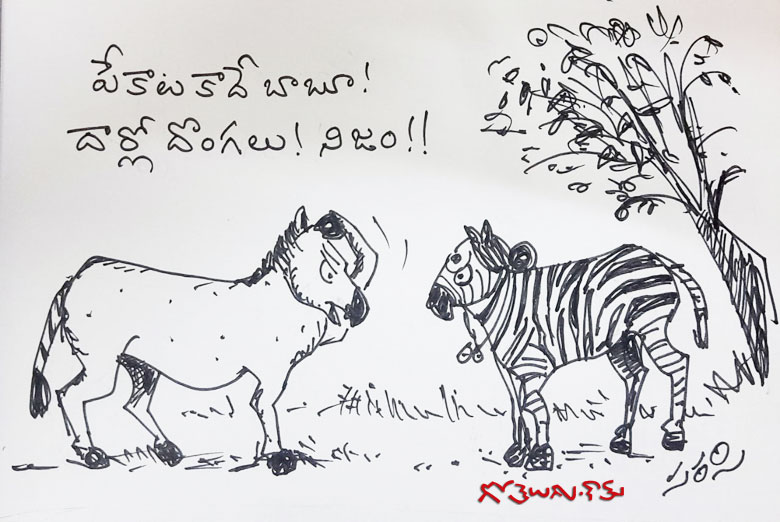 పేకాట కాదే బాబూ!
దార్లో దొంగలు! నిజం!!
గోతెలుగు.కామ్